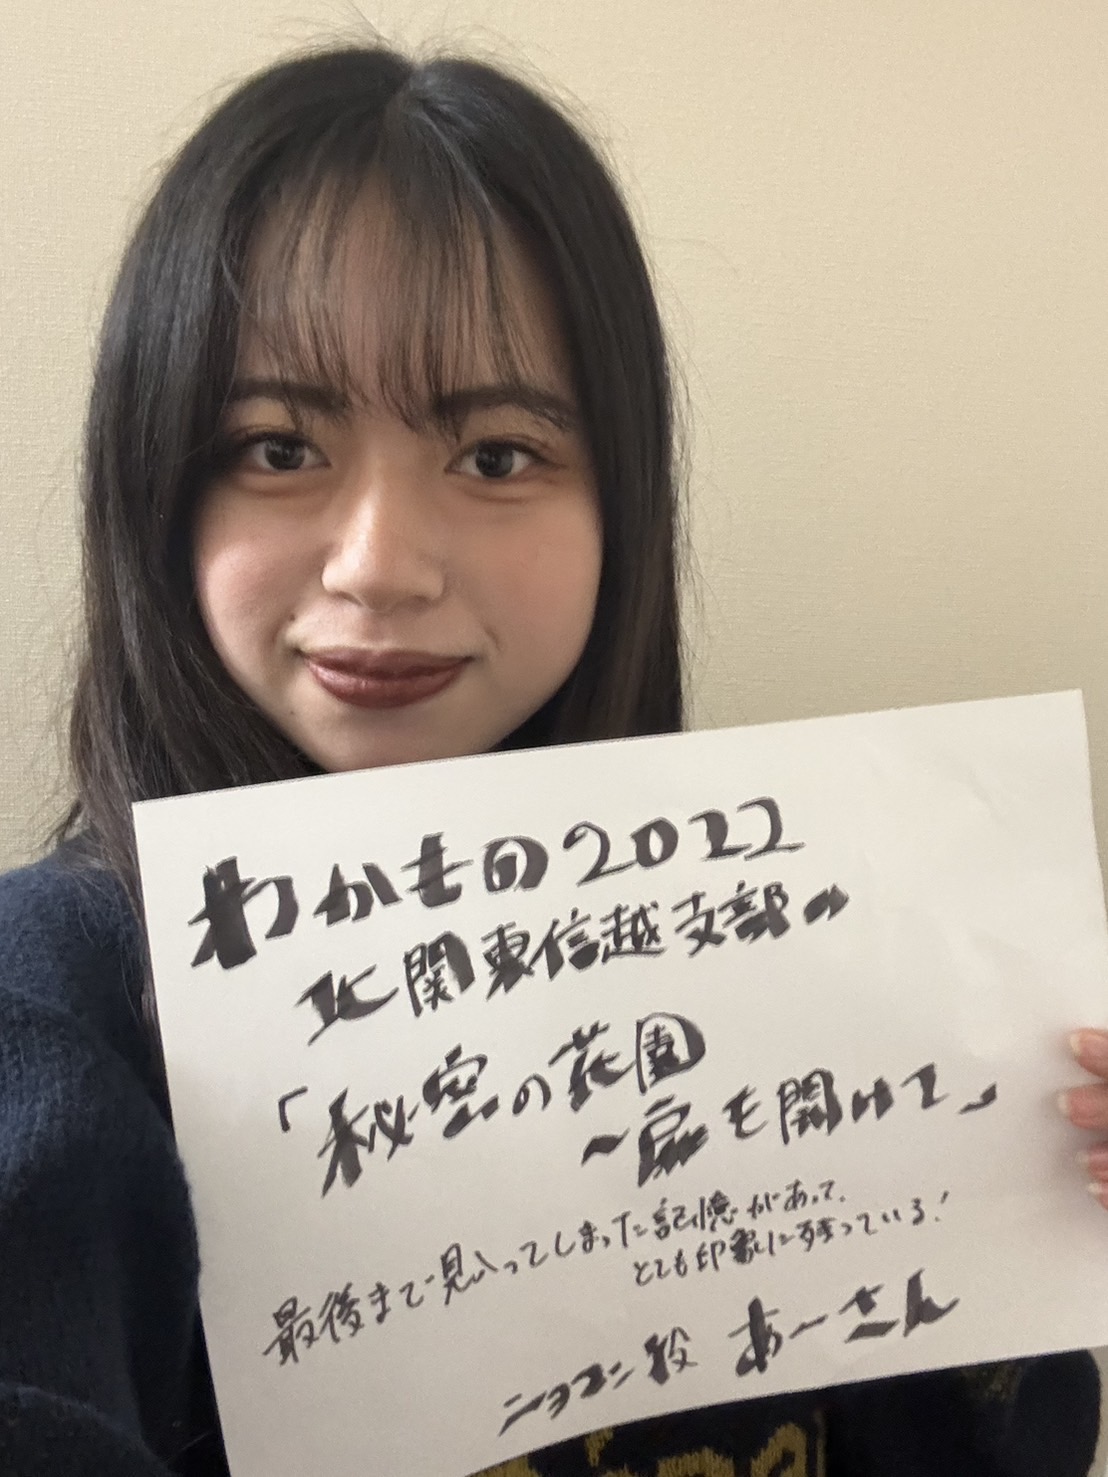 わかもの2022
北関東信越支部の
「秘密の花園
～扉を開けて」
最後まで見入ってしまった記憶があって、
とても印象に残っている!
ニョコン役 あーさん